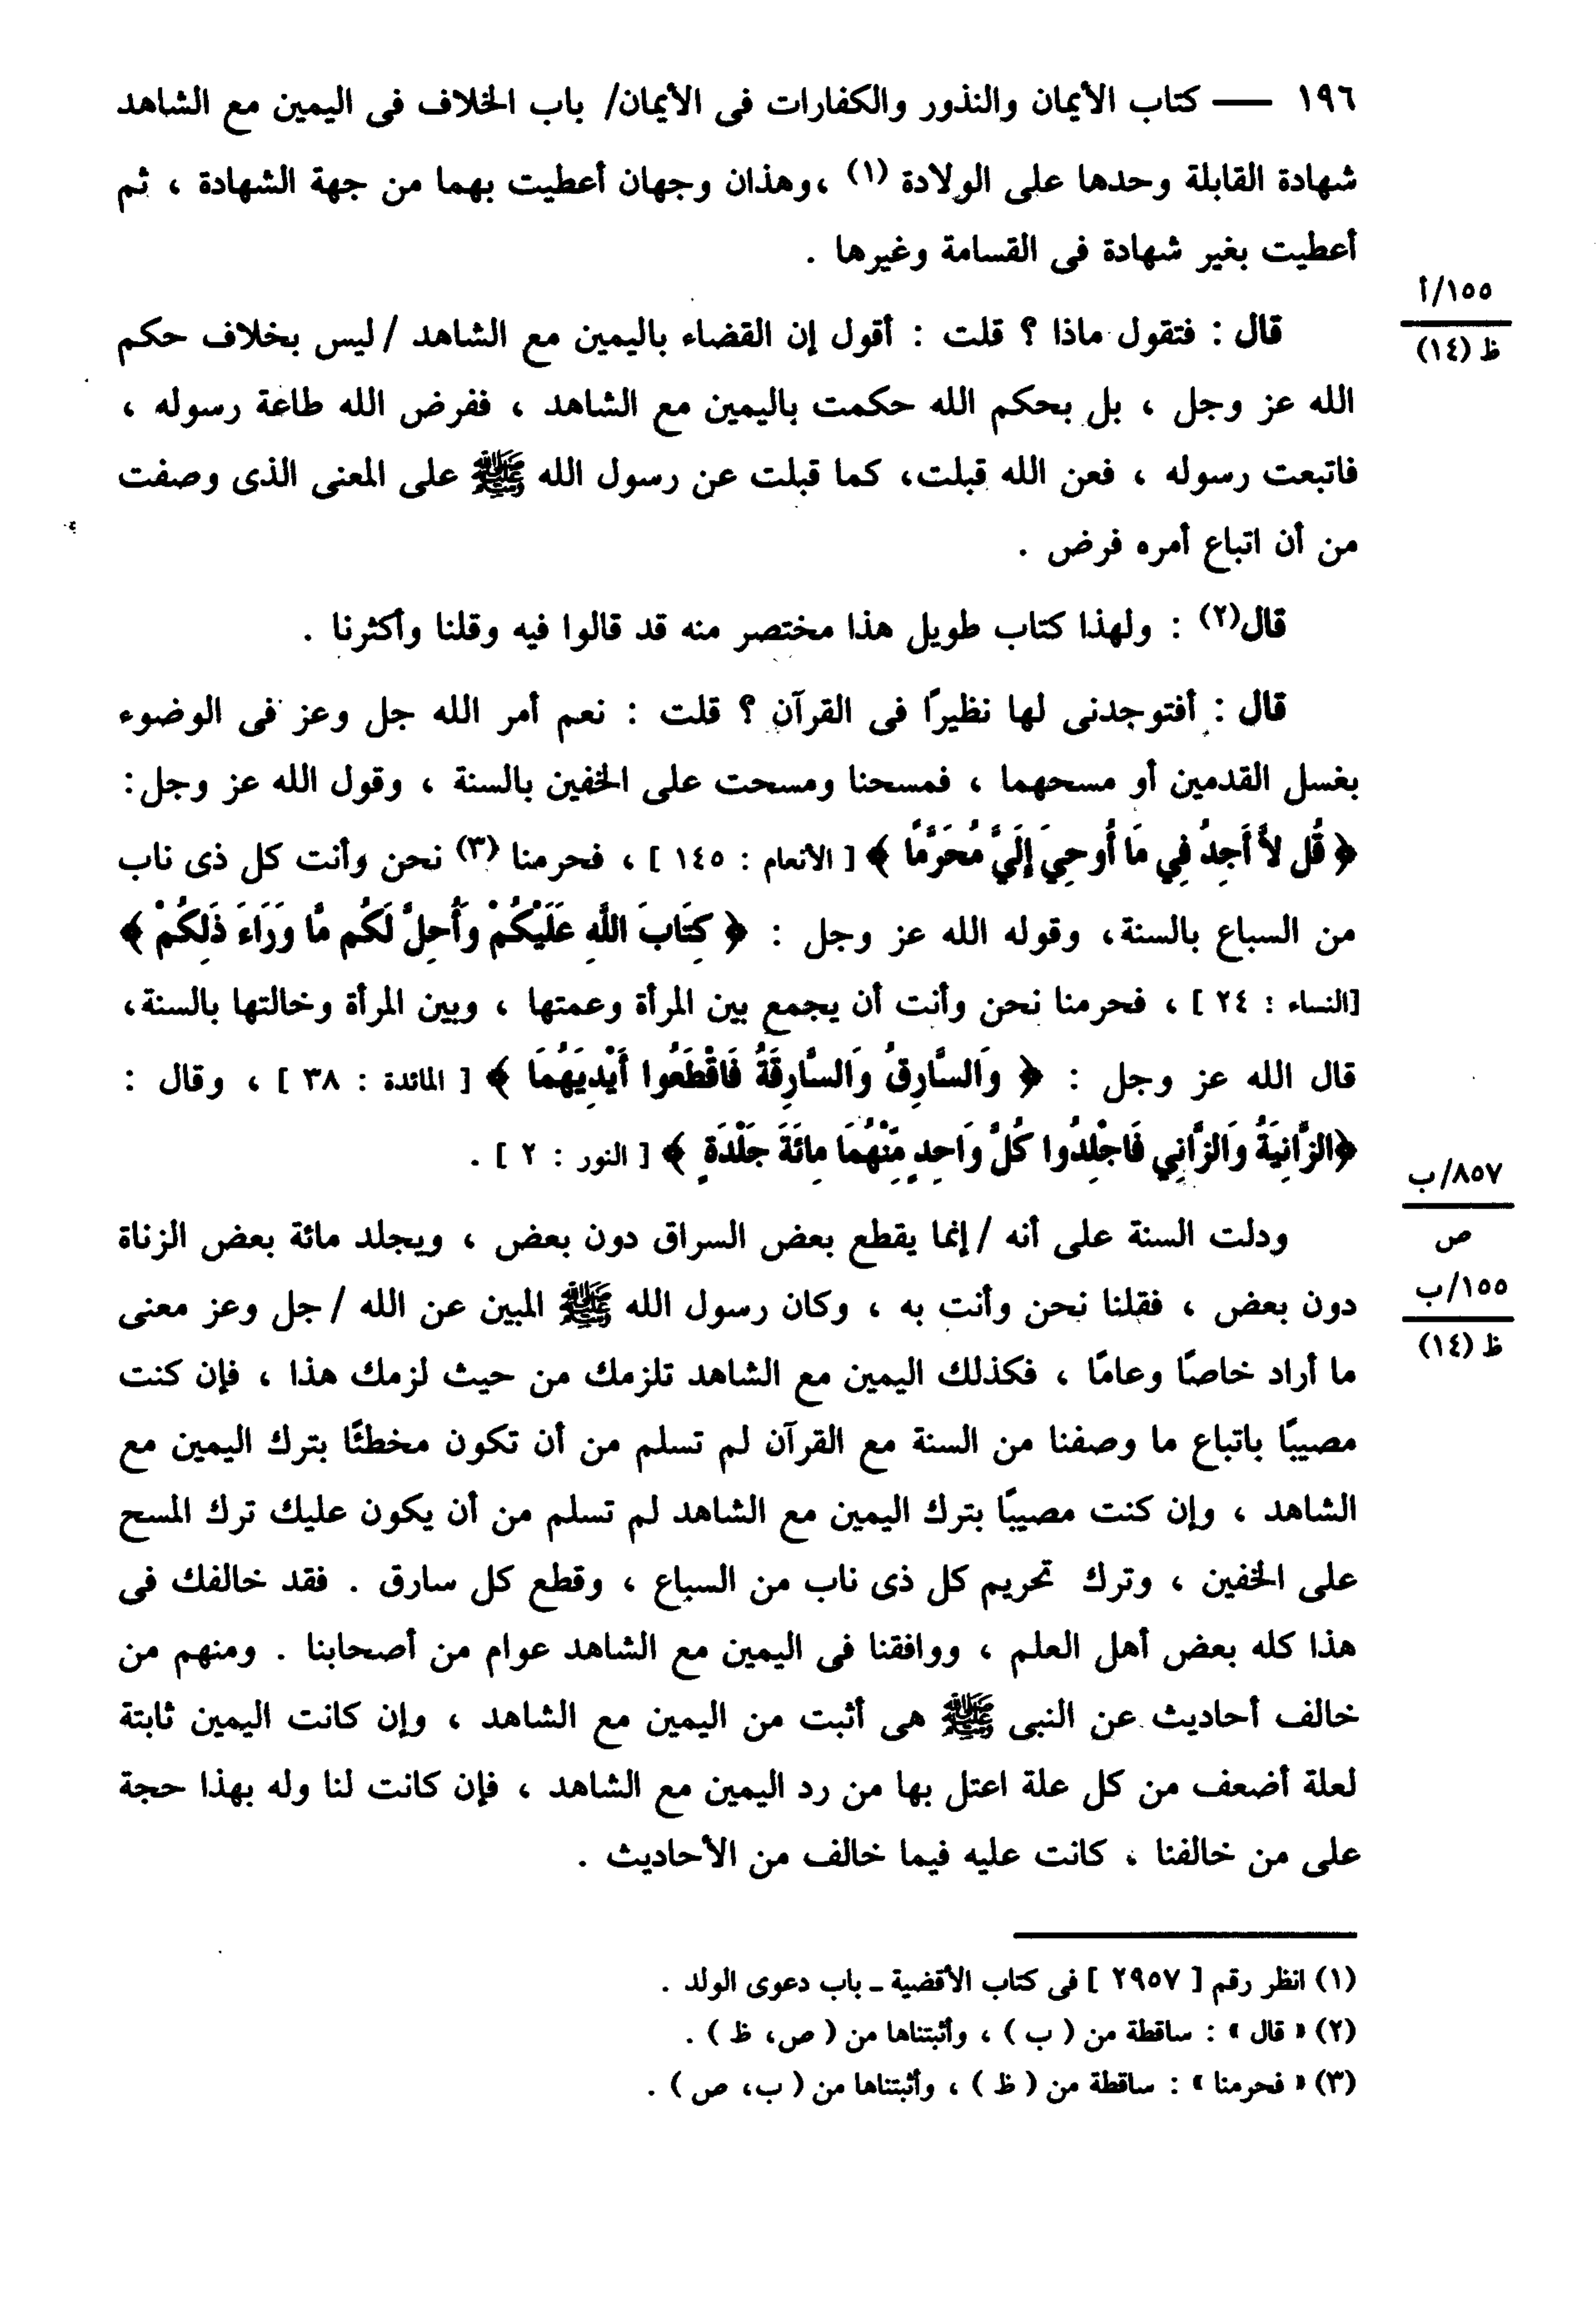 ١٩٦ — كتاب الأيمان والنذور والكفارات فى الأيمان/ باب الخلاف فى اليمين مع الشاهد
شهادة القابلة وحدها على الولادة (١) ،وهذان وجهان أعطيت بهما من جهة الشهادة ، ثم
أعطيت بغير شهادة فى القسامة وغيرها .
١٥٥/أ
ظ (١٤)
قال : فتقول ماذا ؟ قلت : أقول إن القضاء باليمين مع الشاهد /ليس بخلاف حكم
الله عز وجل ، بل بحكم الله حكمت باليمين مع الشاهد ، ففرض الله طاعة رسوله ،
فاتبعت رسوله ، فعن الله قبلت، كما قبلت عن رسول الله ﷺ على المعنى الذى وصفت
من أن اتباع أمره فرض .
قال(٢) : ولهذا كتاب طويل هذا مختصر منه قد قالوا فيه وقلنا وأكثرنا .
قال : أفتوجدنى لها نظيرًا فى القرآن ؟ قلت : نعم أمر الله جل وعز فى الوضوء
بغسل القدمين أو مسحهما ، فمسحنا ومسحت على الخفين بالسنة ، وقول الله عز وجل:
﴿ قُل لاَّ أَجِدُ فِي مَا أُوحِيَ إِلَيَّ مُحَرَّمًا ﴾ [ الأنعام : ١٤٥ ] ، فحرمنا (٣) نحن وأنت كل ذى ناب
من السباع بالسنة، وقوله الله عز وجل : ﴿ كِتَابَ اللَّهِ عَلَيْكُمْ وَأُحِلَّ لَكُم مَّا وَرَاءَ ذَلِكُمْ ﴾
[النساء : ٢٤ ] ، فحرمنا نحن وأنت أن يجمع بين المرأة وعمتها ، وبين المرأة وخالتها بالسنة،
قال الله عز وجل : ﴿ وَالسَّارِقُ وَالسَّارِقَةُ فَاقْطَعُوا أَيْدِيَهُمَا ﴾ [ المائدة : ٣٨ ] ، وقال :
﴿الزَّانِيَةُ وَالزَّانِي فَاجْلِدُوا كُلَّ وَاحِدٍ مِّنْهُمَا مِائَةَ جَلْدَةٍ ﴾ [ النور : ٢ ] .
٨٥٧/ب
ص
ودلت السنة على أنه /إنما يقطع بعض السراق دون بعض ، ويجلد مائة بعض الزناة
١٥٥/ب
ظ (١٤)
دون بعض ، فقلنا نحن وأنت به ، وكان رسول الله ﷺ المبين عن الله /جل وعز معنى
ما أراد خاصًا وعامًا ، فكذلك اليمين مع الشاهد تلزمك من حيث لزمك هذا ، فإن كنت
مصيبًا باتباع ما وصفنا من السنة مع القرآن لم تسلم من أن تكون مخطئًا بترك اليمين مع
الشاهد ، وإن كنت مصيبًا بترك اليمين مع الشاهد لم تسلم من أن يكون عليك ترك المسح
على الخفين ، وترك تحريم كل ذى ناب من السباع ، وقطع كل سارق . فقد خالفك فى
هذا كله بعض أهل العلم ، ووافقنا فى اليمين مع الشاهد عوام من أصحابنا . ومنهم من
خالف أحاديث عن النبى ﷺ هى أثبت من اليمين مع الشاهد ، وإن كانت اليمين ثابتة
لعلة أضعف من كل علة اعتل بها من رد اليمين مع الشاهد ، فإن كانت لنا وله بهذا حجة
على من خالفنا ، كانت عليه فيما خالف من الأحاديث .
(١) انظر رقم [ ٢٩٥٧ ] فى كتاب الأقضية ـ باب دعوى الولد .
(٢) « قال » : ساقطة من ( ب ) ، وأثبتناها من ( ص، ظ ) .
(٣) « فحرمنا » : ساقطة من ( ظ ) ، وأثبتناها من ( ب، ص ) .